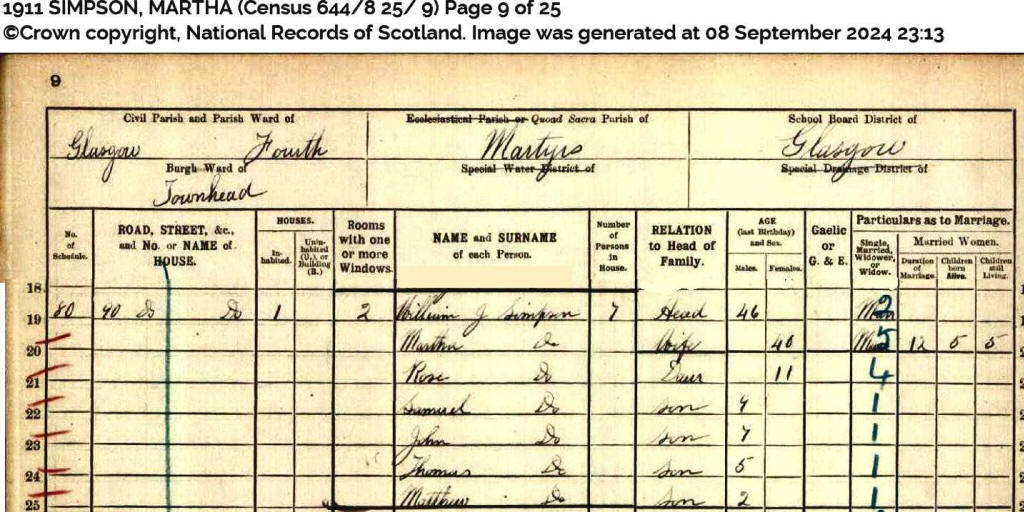 1911 SIMPSON, MARTHA (Census 644/8 25/ 9) Page 9 of 25
©Crown copyright, National Records of Scotland. Image was generated at 08 September 2024 23:13
9
Civil Parish and Parish Ward of
Glasgow Fourth
Burgh Ward of
Townhead
Ecclesiastical Parish or Quoad Sacra Parish of
Martyrs
Special Water District of
School Board District of
Glasgow
Special Drainage District of
No. of Schedule.
ROAD, STREET, &c., and No. or NAME of HOUSE.
HOUSES.
In-habited.
Unin-habited (U.), or Building (B.)
Rooms with one or more Windows.
NAME and SURNAME of each Person.
Number of Persons in House.
RELATION to Head of Family.
AGE (last Birthday) and Sex.
Males. Females.
Gaelic or G. & E.
Particulars as to Marriage.
Single, Married, Widower, or Widow.
Married Women.
Duration of Marriage.
Children born Alive.
Children still Living.
18
19 80 90 Do Do 1 2 William J Simpson 7 Head 46 2
20 Martha Do Wife 40 5 12 5 5
21 Rose Do Daur 11 4
22 Samuel Do son 1
23 John Do son 7 1
24 Thomas Do son 5 1
25 Matthew Do son 2 1